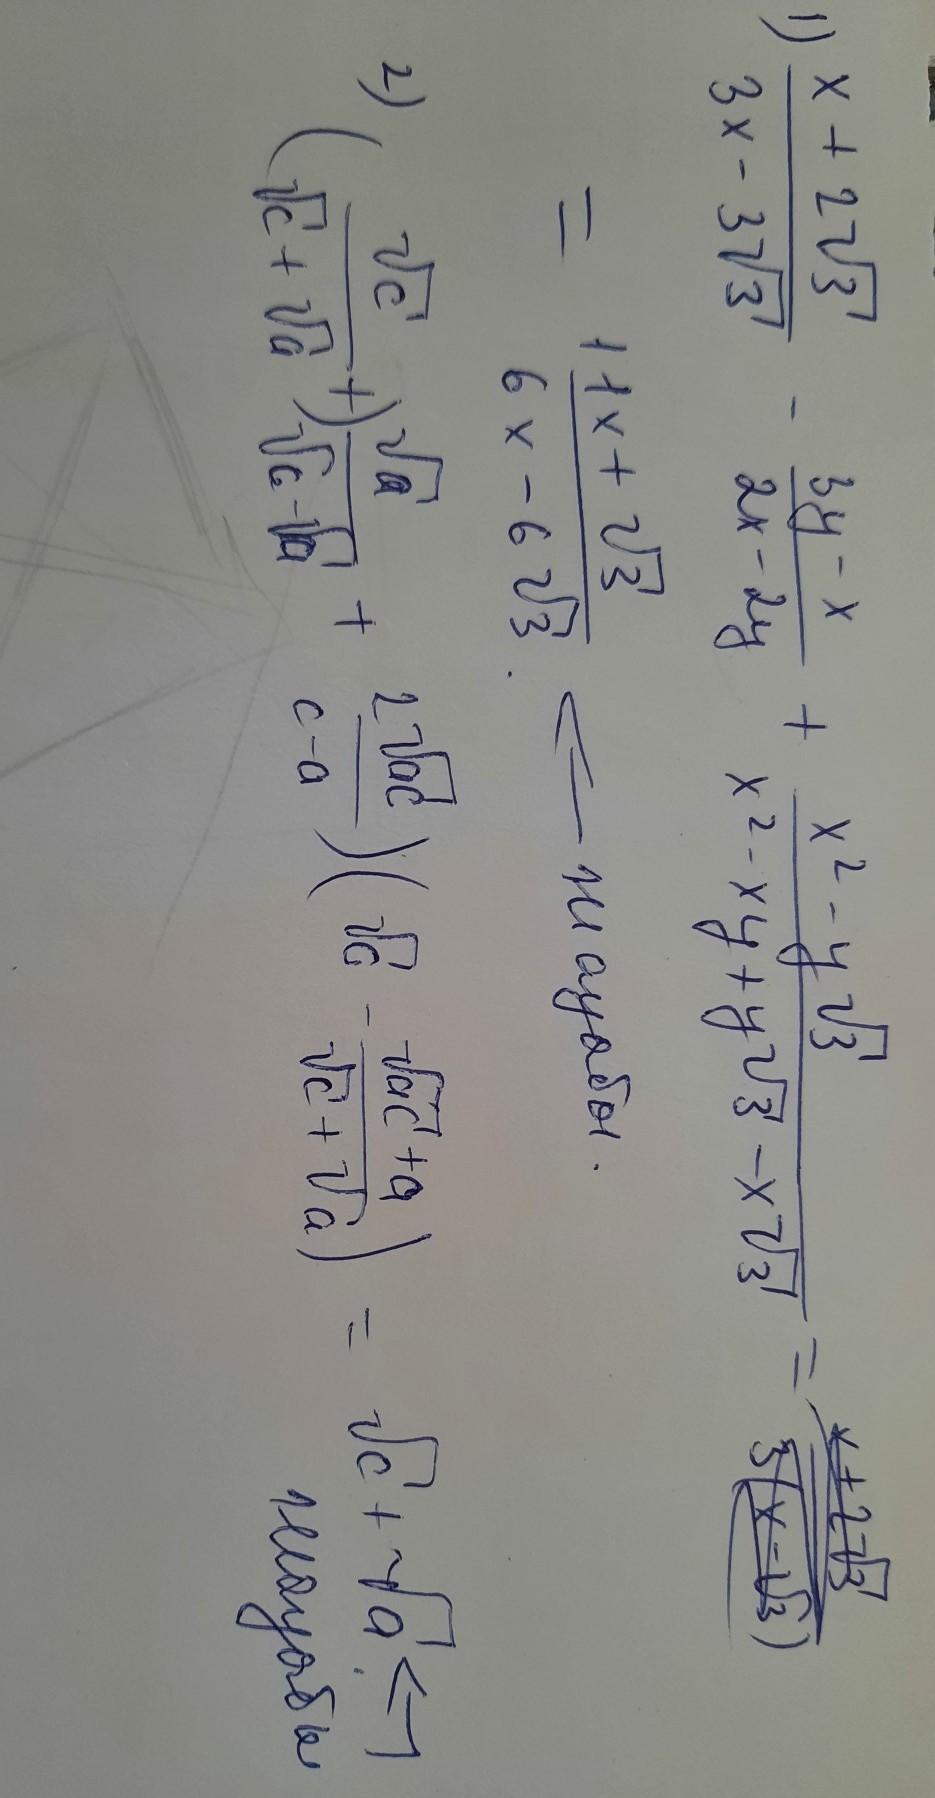 1) (x + 2√3)/(3x - 3√3) - (3y - x)/(2x - 2y) + (x² - y√3)/(x² - xy + y√3 - x√3) =
= (11x + √3)/(6x - 6√3). ← жауабы.
2) (√c/(√c + √a) + √a/(√c - √a) + 2√ac/(c - a)) (√c - (√ac + a)/(√c + √a)) = √c + √a. ←
жауабы